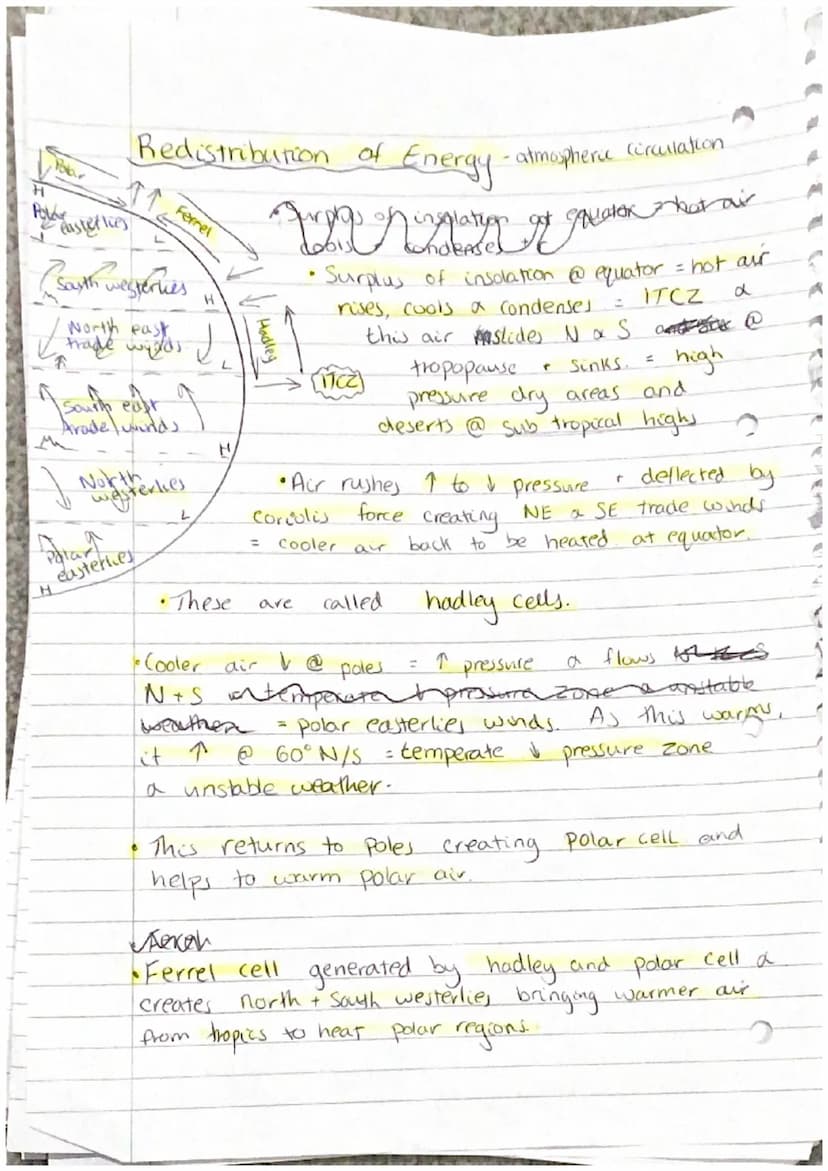 Redistribution of Energy - atmospheric circulation
Polar
H
Ferrel
Polar easterlies
L
L
South westerlies
H
North east
trade winds
Hadley
L
ITCZ
South east
trade winds
H
North
westerlies
L
Polar
easterlies
H
Surplus of insolation equator hot air
condense
• Surplus of insolation @ equator = hot air
rises, cools & condenses = ITCZ &
this air slides N & S @
tropopause + sinks. = high
pressure dry areas and
deserts @ sub tropical highs
• Air rushes ↑ to ↓ pressure + deflected by
coriolis force creating NE & SE trade winds
= cooler air back to be heated at equator.
• These are called hadley cells.
• Cooler air ↓ @ poles = ↑ pressure & flows
N + S temperate ↓ pressure zone & unstable
weather = polar easterlies winds. As this warms,
it ↑ @ 60° N/S = temperate ↓ pressure zone
& unstable weather.
• This returns to poles creating polar cell and
helps to warm polar air.
• Ferrel cell generated by hadley and polar cell &
creates north + south westerlies bringing warmer air
from tropics to heat polar regions.